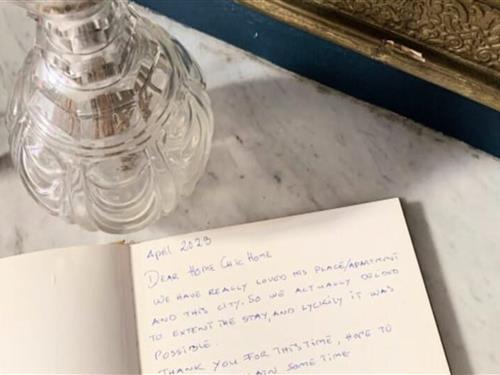 April 2023
DEAR HOME CHIC HOME
WE HAVE REALLY LOVED HIS PLACE/APARTMENT
AND THIS CITY. SO WE ACTUALLY DECIDED
TO EXTENT THE STAY, AND LYCKILY IT WAS
POSSIBLE.
THANK YOU FOR THIS TIME, HOPE TO
AIN SOME TIME